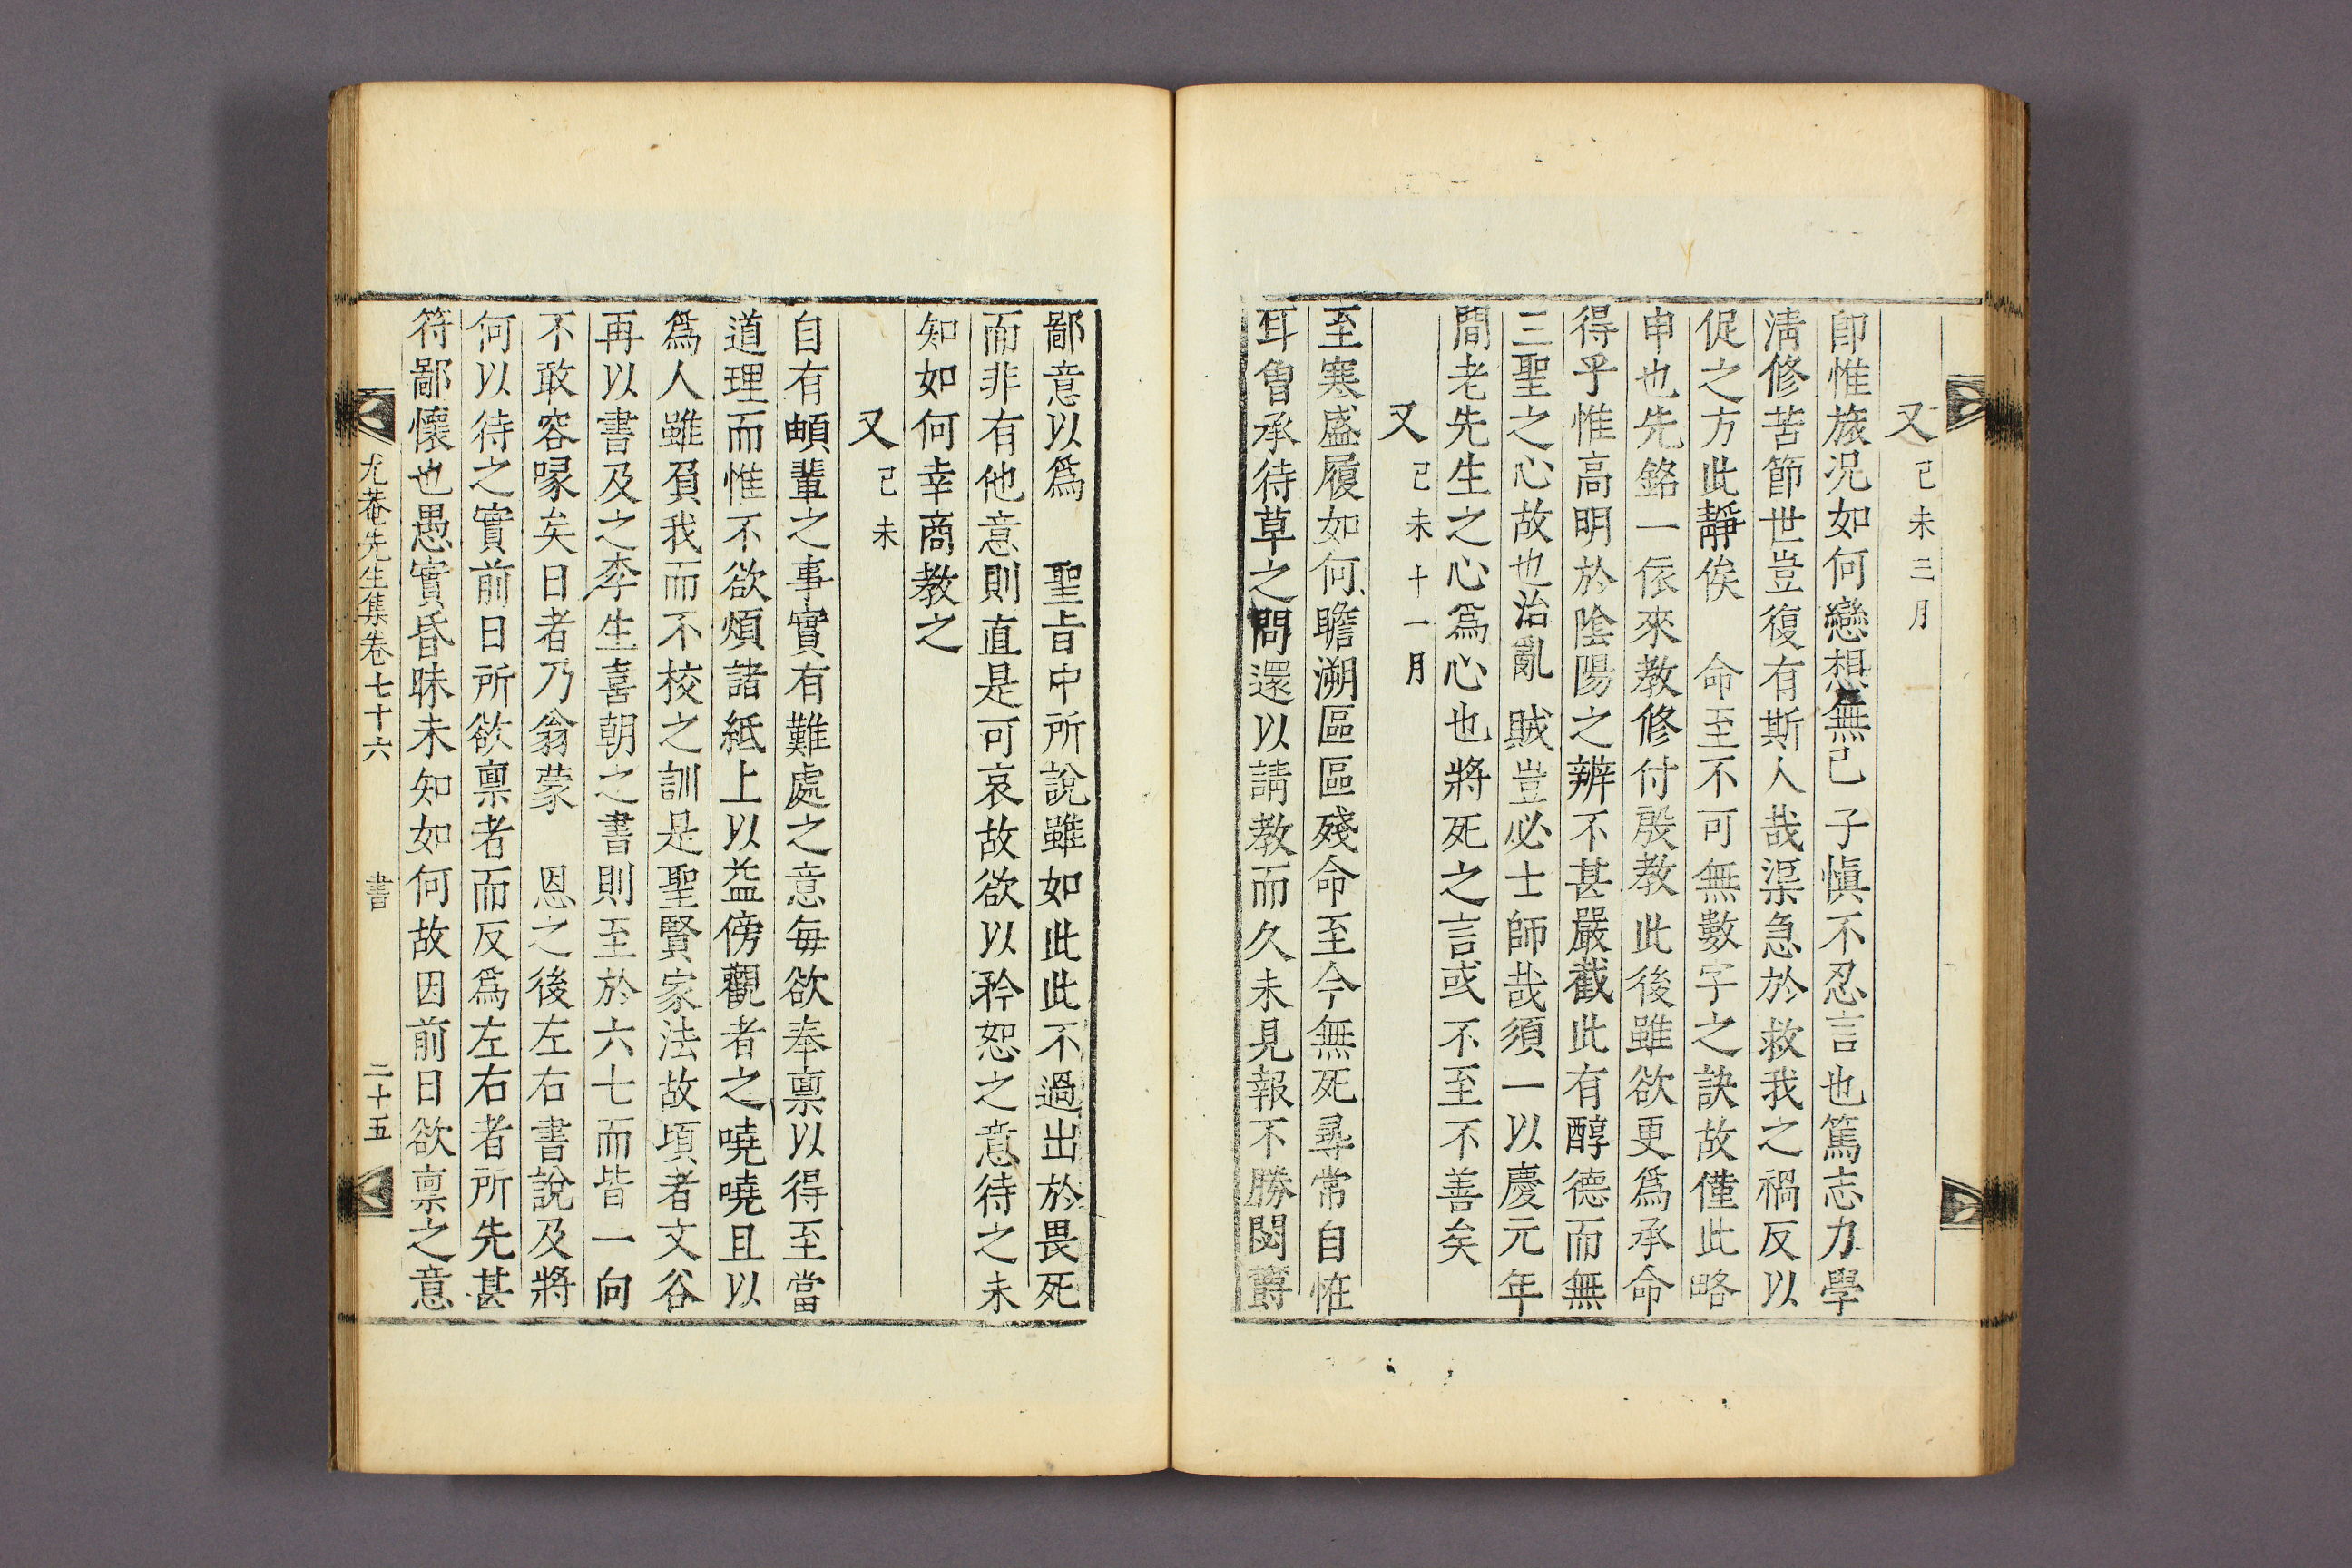 又己未三月
卽惟旅況如何戀想無已子愼不忍言也篤志力學
淸修苦節世豈復有斯人哉渠急於救我之禍反以
促之方此靜俟 命至不可無數字之訣故僅此略
申也先銘一依來敎修付殷敎此後雖欲更爲承命
得乎惟高明於陰陽之辨不甚嚴截此有醇德而無
三聖之心故也治亂賊豈必士師哉須一以慶元年
間老先生之心爲心也將死之言或不至不善矣
又己未十一月
至寒盛履如何瞻溯區區殘命至今無死尋常自怪
耳曾承待草之問還以請敎而久未見報不勝閔欝
鄙意以爲 聖旨中所說雖如此此不過出於畏死
而非有他意則直是可哀故欲以矜恕之意待之未
知如何幸商敎之
又己未
自有䪼輩之事實有難處之意每欲奉稟以得至當
道理而惟不欲煩諸紙上以益傍觀者之嘵嘵且以
爲人雖負我而不校之訓是聖賢家法故頃者文谷
再以書及之李生喜朝之書則至於六七而皆一向
不敢容喙矣日者乃翁蒙 恩之後左右書說及將
何以待之實前日所欲稟者而反爲左右者所先甚
符鄙懷也愚實昏昧未知如何故因前日欲稟之意
尤菴先生集卷七十六 書 二十五